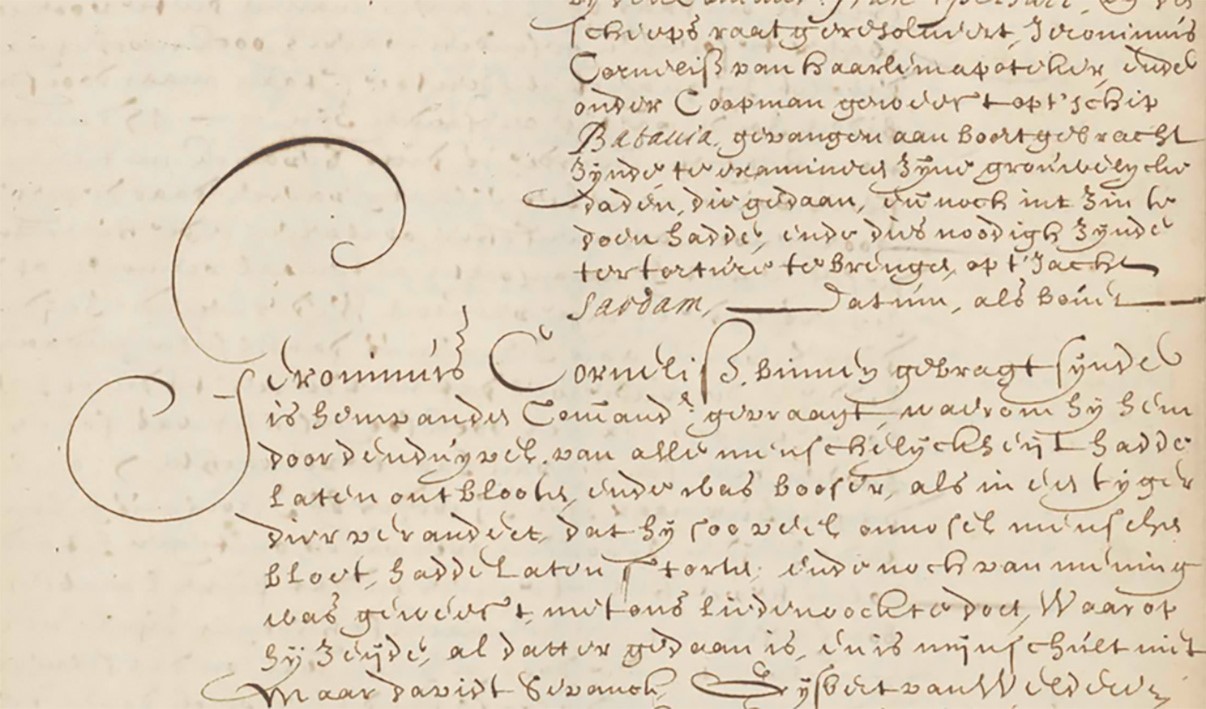 scheeps raat geresolveert, Jeronimus
Cornelisz van haarlem apoteker, ende
onder Coopman geweest opt' schip
Batavia, gevangen aan boort gebracht
zynde, te examineren zyne grouwelycke
daden, die gedaan, en noch int zin te
doen hadde, ende dies noodigh zynde
ter torture te brengen, op t' Jacht
Sardam, Datum, als boven
Jeronimus Cornelisz, binnen gebragt synde
is hem van den Comand.r gevraagt, waerom hy hem
door den duyvel van alle menschelyckheijt hadde
laten ontblooten, ende was booser, als in een tyger
dier verandert, dat hy soo veel onnosel menschen
bloet, hadde laten storten, ende noch van mening
was geweest, met ons luden oock te doen, Waar op
hy zeijde, al datter gedaan is, en is mijn schult niet
Maar davidt Sevanck, Gysbert van Welderen,